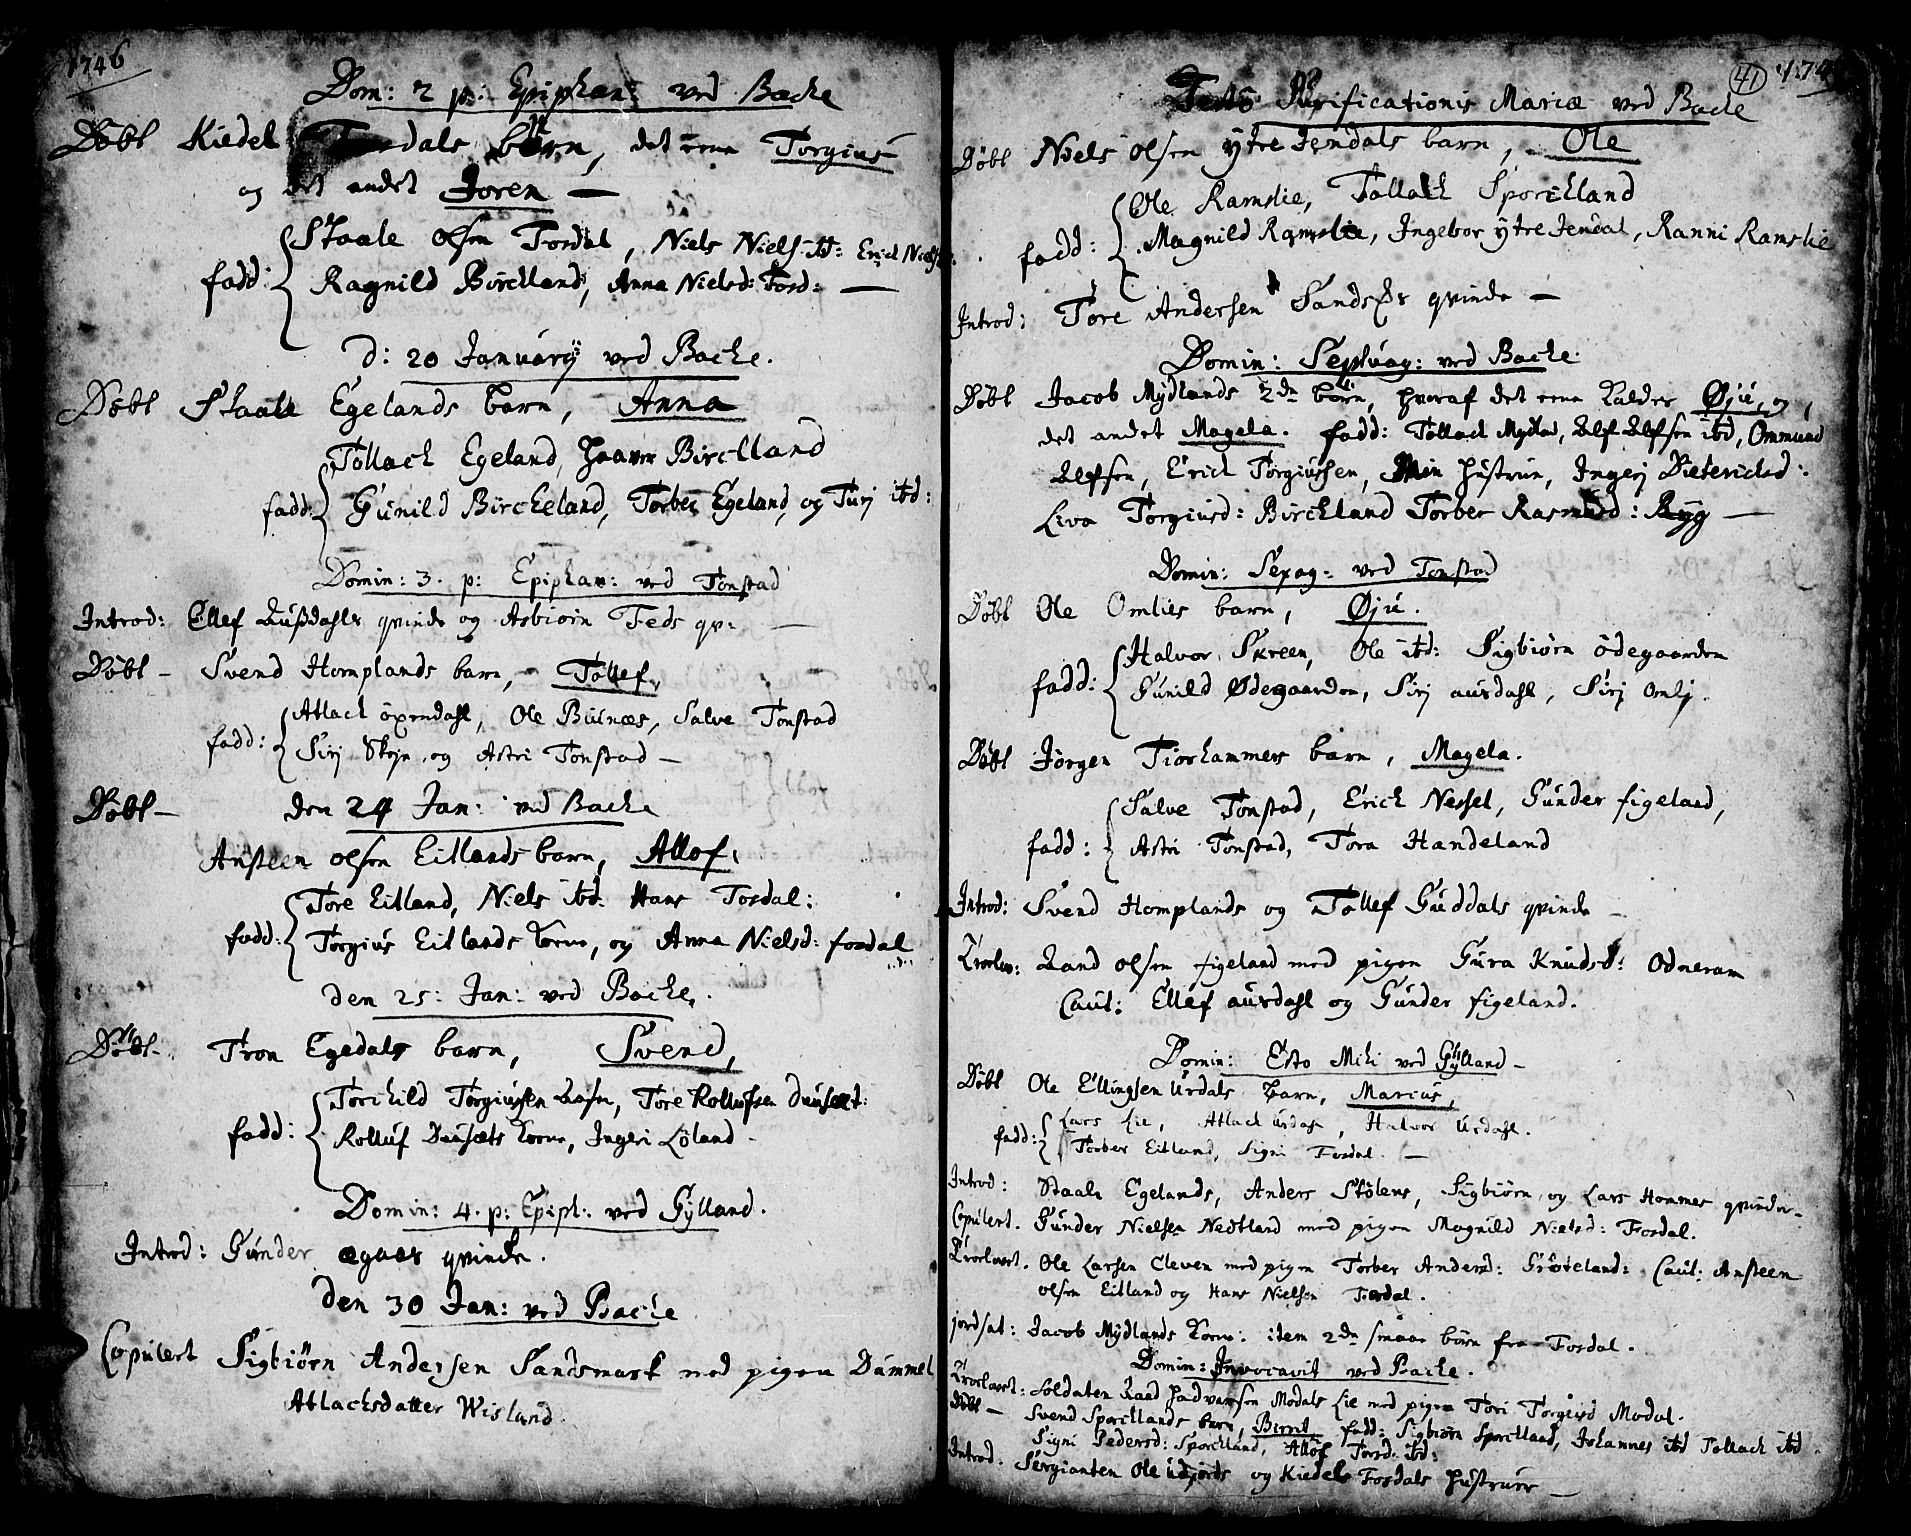 1746
Dom: 2 p: Epiphan: ved Backe
Döbt Kiedel Fosdals börn, det eene Torgius
og det andet Joren —
Staale olsen Fosdal, Niels Niels: ibd: Erich Niels:
fadd: Ragnild Birckland, Anna Nielsd: Fosd: —
d: 20 Januarij ved Backe.
Döbt Staale Egelands barn, Anna
Tollach Egeland, Haaver Birckland
fadd: Gunild Birckeland, Torber Egeland, og Turj ibd:
Domin: 3. p: Epiphan: ved Tonstad
Introd: Ellef Qußdahls qvinde og Asbiörn Feds qv: —
Döbt – Svend Homplands barn, – Tollef,
Atlach öxendahl, Ole Buinæs, Salve Tonstad
fadd: Sirj Skoje, og Astri Tonstad —
Döbt – den 24 Jan: ved Backe
Ansteen olsen Eitlands barn, Allof,
Tore Eitland, Niels ibd: Hans Fosdal:
fadd: Torgius Eitlands kone, og Anna Nielsd: fosdal
den 25: Jan: ved Backe.
Döbt – Tron Egedals barn, Svend,
Torchild Torgiussen, Tore Rollufsen Dunsæt:
fadd: Rolluf Dunsæts kone, Ingeri Löland –
Domin: 4. p: Epiph: ved Gylland.
Introd: Gunder ægaas qvinde.
den 30 Jan: ved Backe
Copulert Sigbiörn Andersen Sandsmark med pigen Dummel
Atlacksdatter Wisland
41 174
Festo Purificationis Mariæ ved Backe
Döbt Niels olsen ytre Jendals barn, – Ole
Ole Ramslie, Tallak Sporckland
fadd: Magnild Ramslie, Ingebor ytre Jendal, Ranni Ramslie
Introd: Tore Andersen qvinde —
Domin: Septuag: ved Backe:
Döbt Jacob Mydlands 2de börn, hvoraf det eene kalder Øjü, og
det andet Magela. fadd: Tollach Mydland, ibd, Ommund
Erich Torgiussen, Min Hustrue, Ingerj Dieterichsd:
Liva Torgiusd: Birckland Torber Rasmusd: Ryg —
Domin: Sexag: ved Tonstad
Döbt Ole Omlies barn, Øjü.
Halvor Skreen, Ole ibd: Sigbiörn ödegaarden
fadd: Gunild Ødegaarden, Sirj aursdahl, Sirj Omlj.
Döbt Jörgen Tiorhammers barn, Magela.
Salve Tonstad, Erich Nessel, Gunder figeland,
fadd: Astri Tonstad, Tora Handeland
Introd: Svend Homplands og Tollef Guddals qvinde —
Trolov: Rand olsen figeland med pigen Gura Knudsd: Odneram
Caut: Ellef aursdahl og Gunder figeland.
Domin: Esto Mihi ved Gylland –
Döbt Ole Ellingsen Urdals barn, Marius,
Lars Lie, Atlach Urdahl, Halvor Urdahl.
fadd: Torber Eitland, Signi Fosdal. —
Introd: Staale Egelands, Anders Stölens, Sigbiörn og Lars Hommes qvinder–
Copulert. Gunder Nielsen Nedtland med pigen Magnild Nielsd: Fosdal.
Trolovet. Ole Larsen Cleven med pigen Torber Andersd: Gröteland: Caut: Ansteen
olsen Eitland og Hans Nielsen Fosdal.
jordsat: Jacob Mydlands kone: item 2de smaae börn fra Fosdal.
Domin: Invocavit ved Backe.
Trolovet: Soldaten Raad Hadvarsen Modals Lie med pigen Tori Torgiusd Modal.
Döbt – Svend Sporcklands barn, Berit, fadd: Sigbiörn Sporckland, Johannes ibd Tollach ibd
Signi Pedersd: Sporckland, Allof Torsd. ibd:
Introd. Sergianten Ole Udjords og Kiedels Fosdals Hustruer —